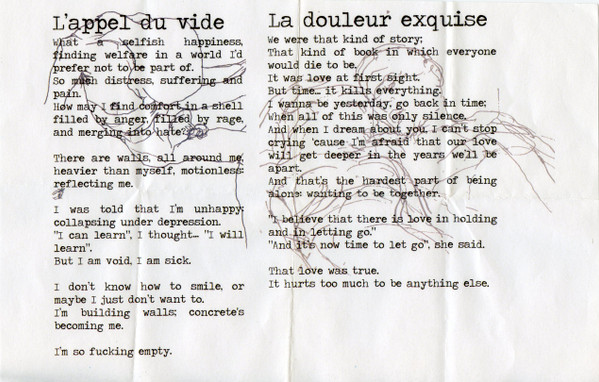 L'appel du vide
What a selfish happiness,
finding welfare in a world I'd
prefer not to be part of.
So much distress, suffering and
pain.
How may I find comfort in a shell
filled by anger, filled by rage,
and merging into hate?
There are walls, all around me,
heavier than myself, motionless:
reflecting me.
I was told that I'm unhappy;
collapsing under depression.
"I can learn", I thought... "I will
learn".
But I am void, I am sick.
I don't know how to smile, or
maybe I just don't want to.
I'm building walls; concrete's
becoming me.
I'm so fucking empty.
La douleur exquise
We were that kind of story;
That kind of book in which everyone
would die to be.
It was love at first sight.
But time... it kills everything.
I wanna be yesterday, go back in time;
When all of this was only silence.
And when I dream about you, I can't stop
crying 'cause I'm afraid that our love
will get deeper in the years we'll be
apart.
And that's the hardest part of being
alone: wanting to be together.
"I believe that there is love in holding
and in letting go."
"And it's now time to let go", she said.
That love was true.
It hurts too much to be anything else.